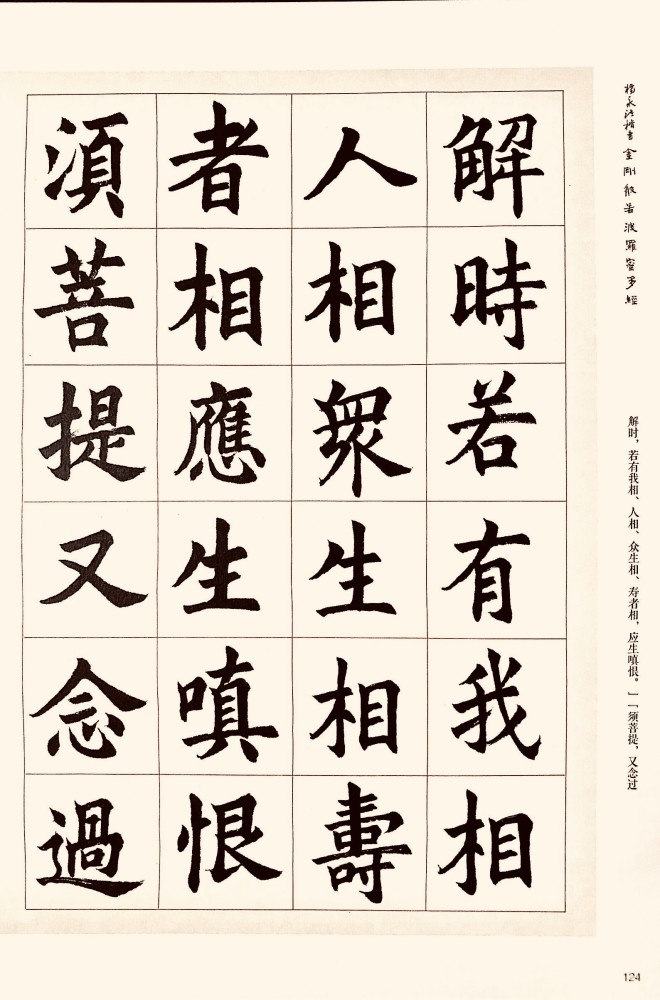 楊永法楷書金剛般若波羅蜜多經
解时，若有我相、人相、众生相、寿者相，应生嗔恨。」「须菩提，又念过
解時若有我相
人相眾生相壽
者相應生嗔恨
須菩提又念過
124